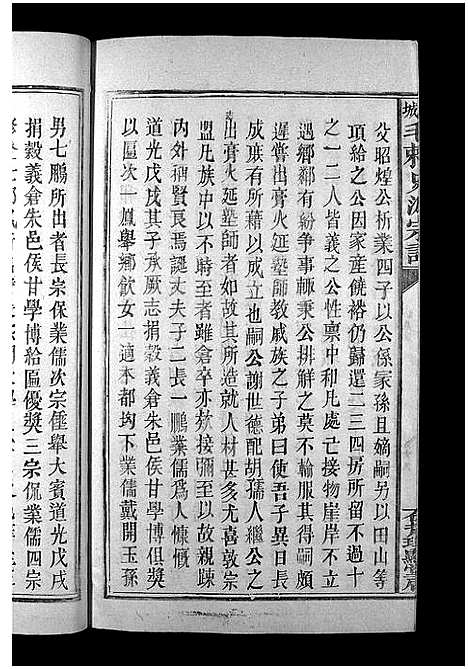 父昭煌公析業四子以公係家孫且嫡嗣另以田山等
項給之公因家產饒裕仍歸還二三四房所留不過十
之一二人皆義之公性稟中和凡處亡接物崖岸不立
遇鄉鄰有紛爭輒秉公排解之莫不輸服其得嗣頗
遲嘗出膏火延塾師教戚族之子弟曰使吾子異日長
成庶有所藉以成立也嗣公謝世德配胡孺人繼公之
出膏火延塾師者如故其所造就人材甚多尤喜敦宗
盟凡族中以不時至者雖倉卒亦欵接彌至而以故親疎
內外神賢民焉誕丈夫子二長一鵬業儒爲人慷慨
道光戊戌其子承厥志捐穀義倉朱邑侯甘學博俱獎
以區次一鳳舉鄉飲女一適本都均下業儒戴開玉孫
男七鵬所出者長宗保業儒次宗僅舉大賓道光戊戌
捐穀義倉朱邑侯甘學博給區優獎三宗侃業儒四宗